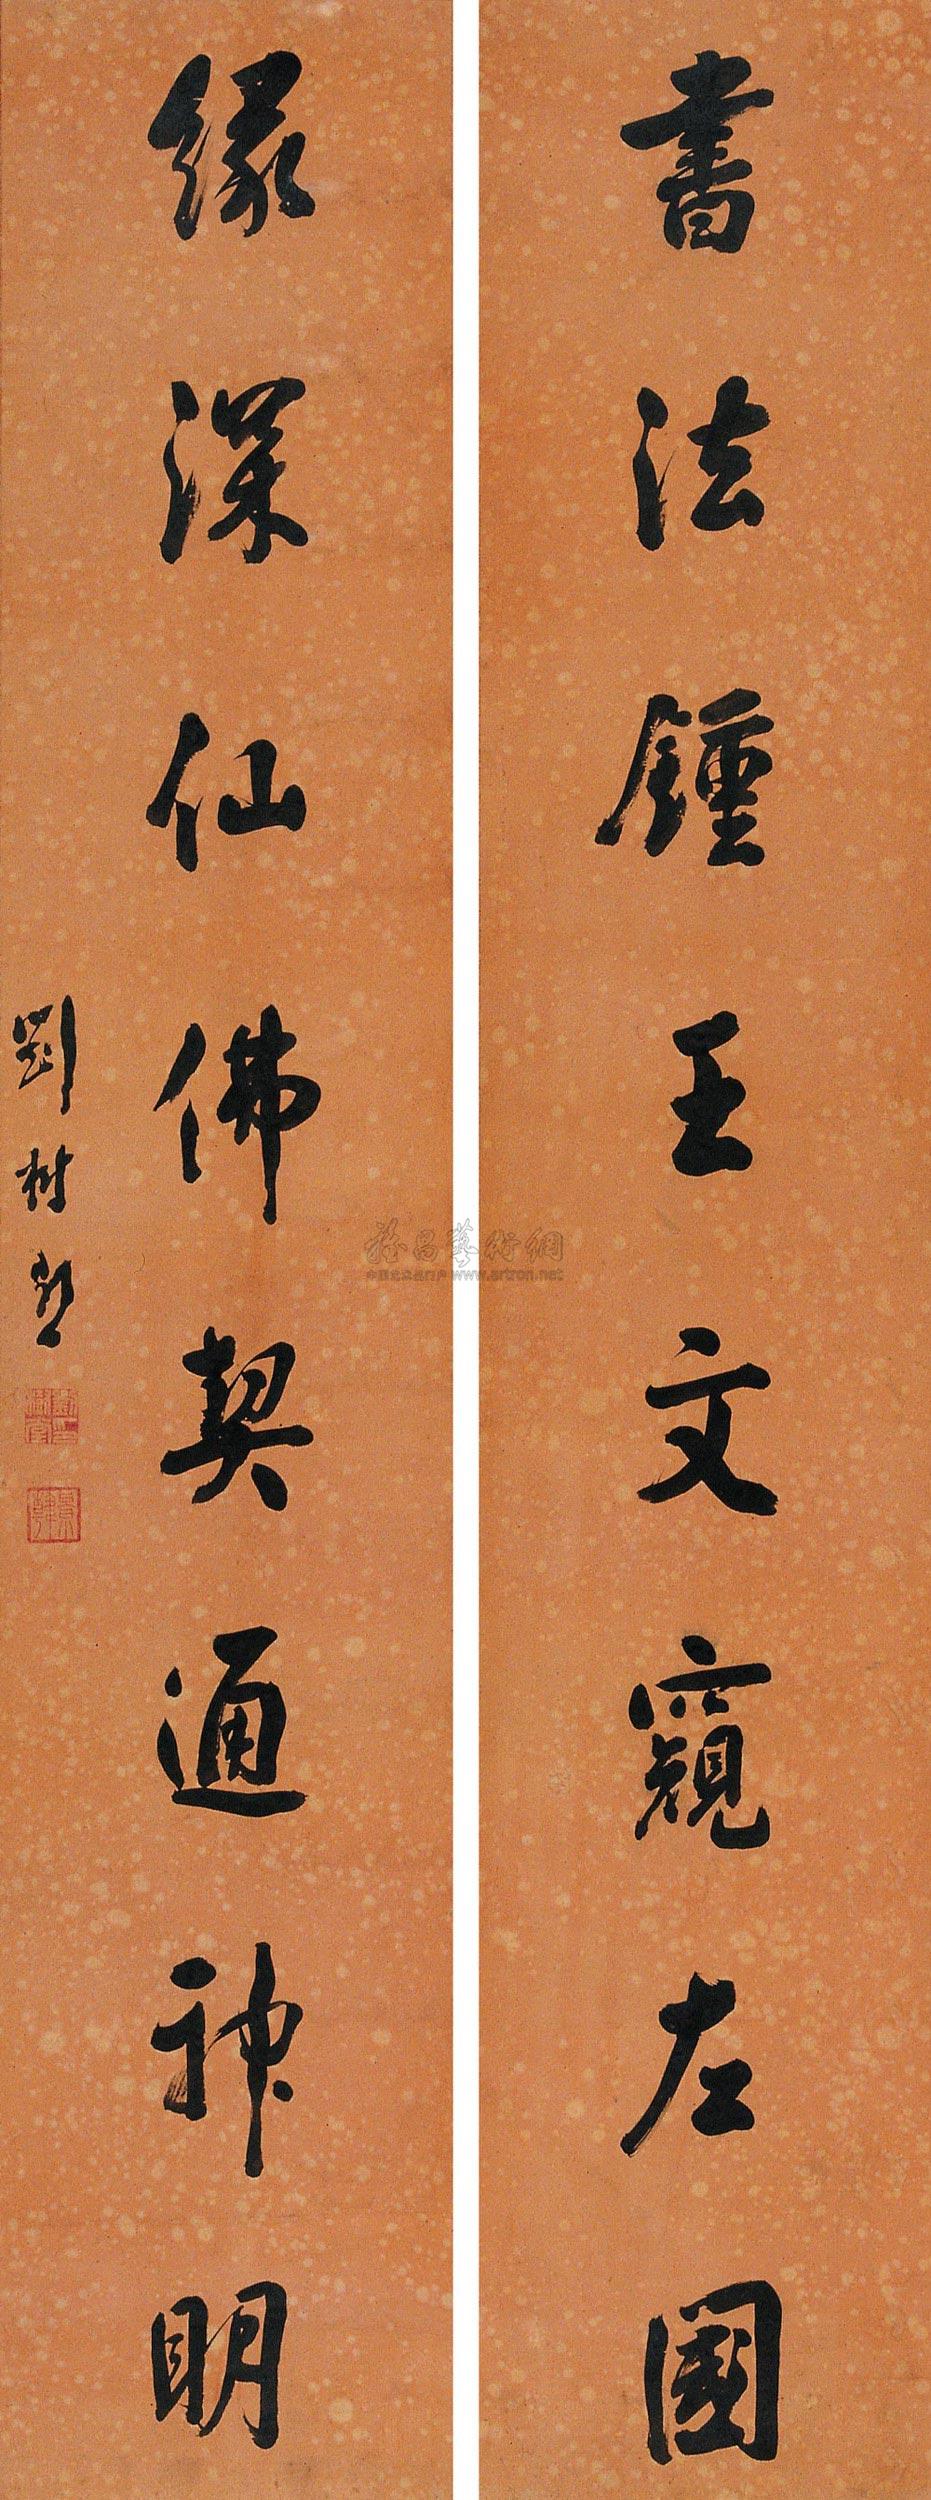 書法鍾王文窺左國
緣深仙佛契通神明
劉樹堂
雅昌藝術網
中国艺术品门户 www.artron.net